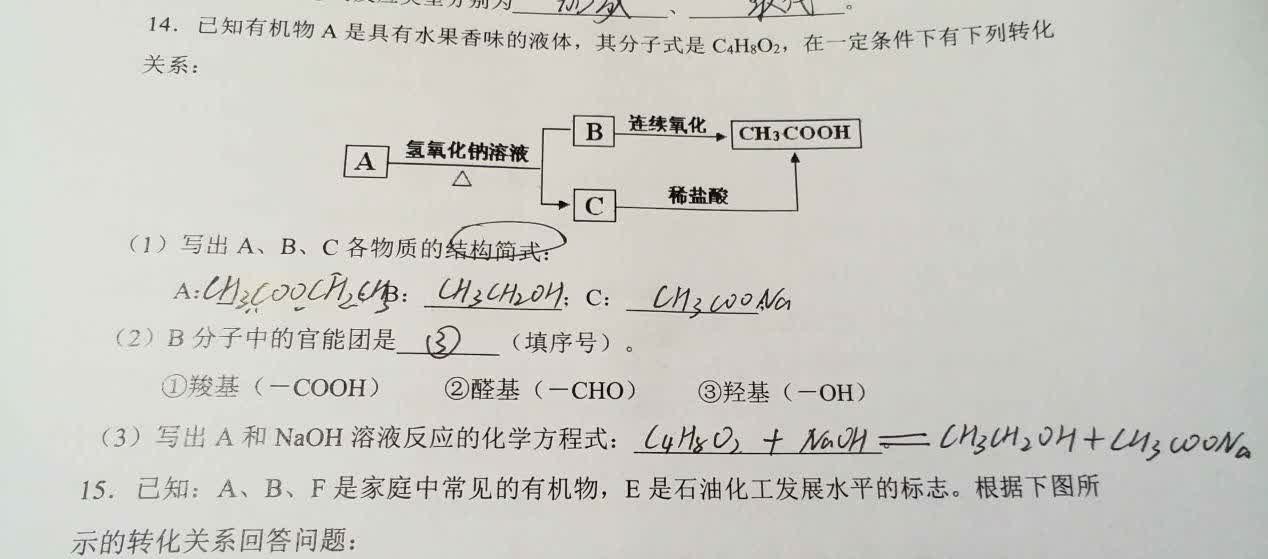 反应类型分别为 加成 、 取代 。
14．已知有机物 A 是具有水果香味的液体，其分子式是 C₄H₈O₂，在一定条件下有下列转化
关系：
B 连续氧化 CH₃COOH
A 氢氧化钠溶液
△
C 稀盐酸
（1）写出 A、B、C 各物质的结构简式：
A: CH₃COOCH₂CH₃ B： CH₃CH₂OH ；C： CH₃COONa
（2）B 分子中的官能团是 ③ （填序号）。
①羧基（－COOH） ②醛基（－CHO） ③羟基（－OH）
（3）写出 A 和 NaOH 溶液反应的化学方程式： C₄H₈O₂ + NaOH = CH₃CH₂OH + CH₃COONa
15．已知：A、B、F 是家庭中常见的有机物，E 是石油化工发展水平的标志。根据下图所
示的转化关系回答问题：